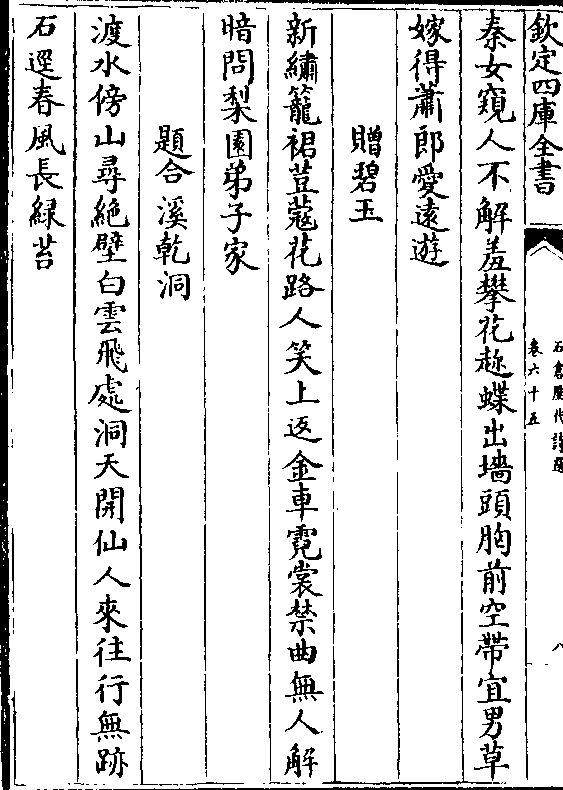 欽定四庫全書
石倉歷代詩選
卷六十五
八
秦女窺人不解羞攀花趂蝶出墻頭胸前空帶宜男草
嫁得蕭郎愛遠遊
贈碧玉
新繡籠裙荳蔻花路人笑上返金車霓裳禁曲無人解
暗問梨園弟子家
題合溪乾洞
渡水傍山尋絶壁白雲飛處洞天開仙人來往行無跡
石逕春風長緑苔